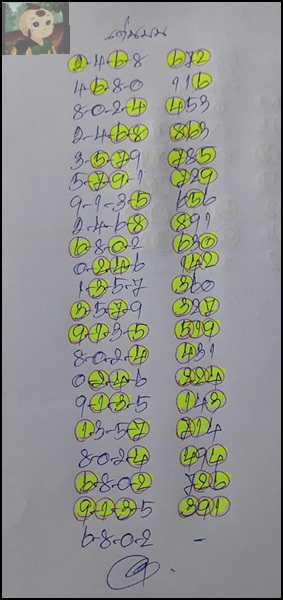 เด่นบน
2-4-6-8 672
4-6-8-0 116
8-0-2-4 453
2-4-6-8 863
3-5-7-9 785
5-7-9-1 729
9-1-3-5 656
2-4-6-8 891
6-8-0-2 630
0-2-4-6 142
1-3-5-7 360
3-5-7-9 327
9-1-3-5 519
8-0-2-4 431
0-2-4-6 224
9-1-3-5 143
1-3-5-7 714
8-0-2-4 494
6-8-0-2 726
9-1-3-5 391
6-8-0-2 -